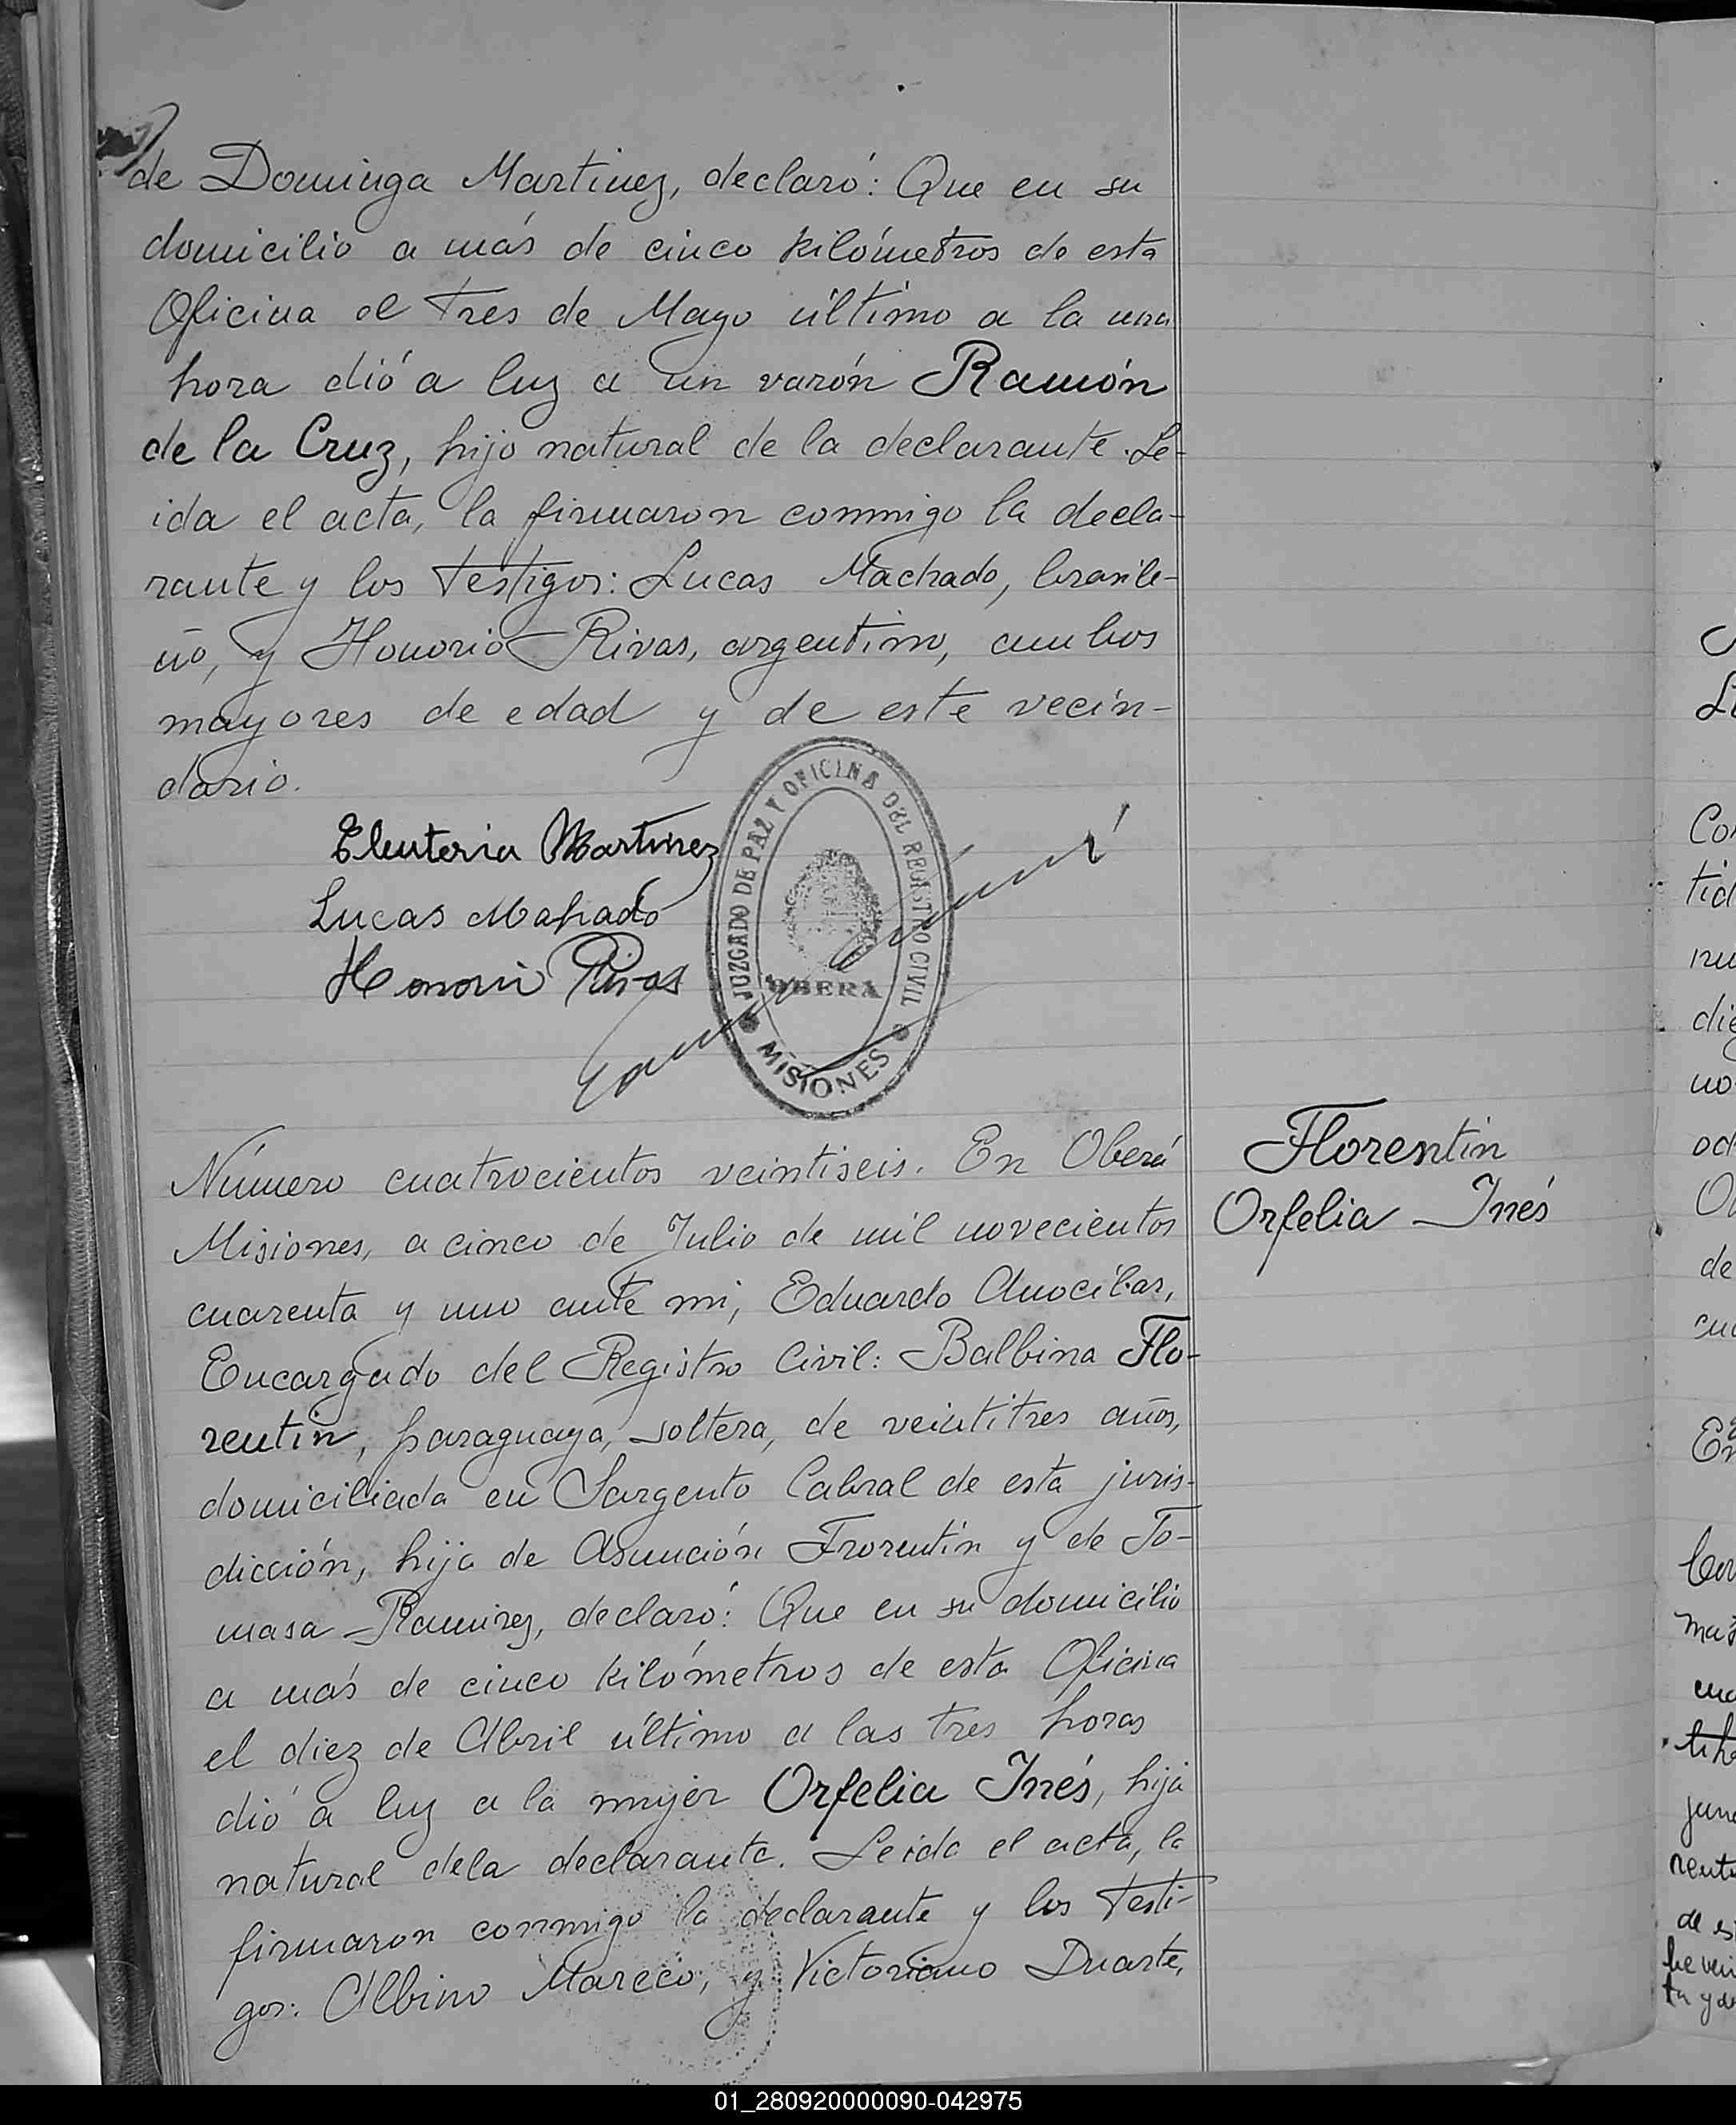 de Dominga Martinez, declaró: Que en su
domicilio a más de cinco kilómetros de esta
Oficina el tres de Mayo último a la una
hora dió a luz a un varón Ramón
de la Cruz, hijo natural de la declarante. Le-
ida el acta, la firmaron conmigo la decla-
rante y los testigos: Lucas Machado, brasile-
ño, y Honorio Rivas, argentino, ambos
mayores de edad y de este vecin-
dario.
Eleuteria Martinez
Lucas Mahado
Honorio Rivas
JUZGADO DE PAZ Y OFICINA DEL REGISTRO CIVIL
OBERA
MISIONES
Número cuatrocientos veintiseis. En Oberá
Misiones, a cinco de Julio de mil novecientos
cuarenta y uno ante mi, Eduardo Anocíbar,
Encargado del Registro Civil: Balbina Flo-
rentin, paraguaya, soltera, de veintitres años,
domiciliada en Sargento Cabral de esta juris-
dicción, hija de Asunción Frorentín y de To-
masa Ramirez, declaró: Que en su domicilio
a más de cinco kilómetros de esta Oficina
el diez de Abril último a las tres horas
dió a luz a la mujer Orfelia Inés, hija
natural dela declarante. Leida el acta, la
firmaron conmigo la declarante y los testi-
gos: Albino Mareco, y Victoriano Duarte,
Florentin
Orfelia Inés
01_280920000090-042975